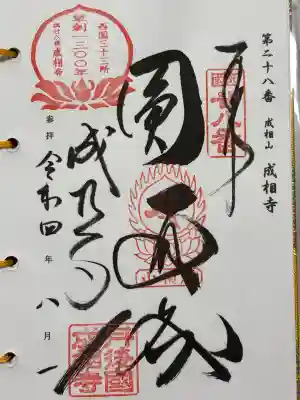 第二十八番 成相山 成相寺
奉拝
西国
十八番
圓通城
成相寺
参拝 令和四年八月一
西国三十三所
草創一三〇〇年
成相寺
丹後國
成相寺